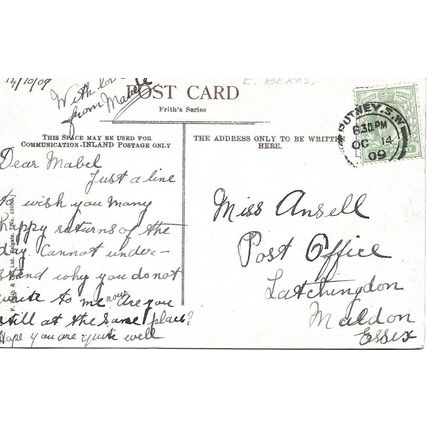 14/10/09
With love
from Mabel
POST CARD
Frith's Series
THIS SPACE MAY BE USED FOR
COMMUNICATION-INLAND POSTAGE ONLY
THE ADDRESS ONLY TO BE WRITTEN
HERE.
PUTNEY. S.W.
8.30PM
OC 14
09
Dear Mabel
Just a line
to wish you many
happy returns of the
day. Cannot under-
stand why you do not
write to me now are you
still at the same place?
Hope you are quite well
Miss Ansell
Post Office
Latchingdon
Maldon
Essex